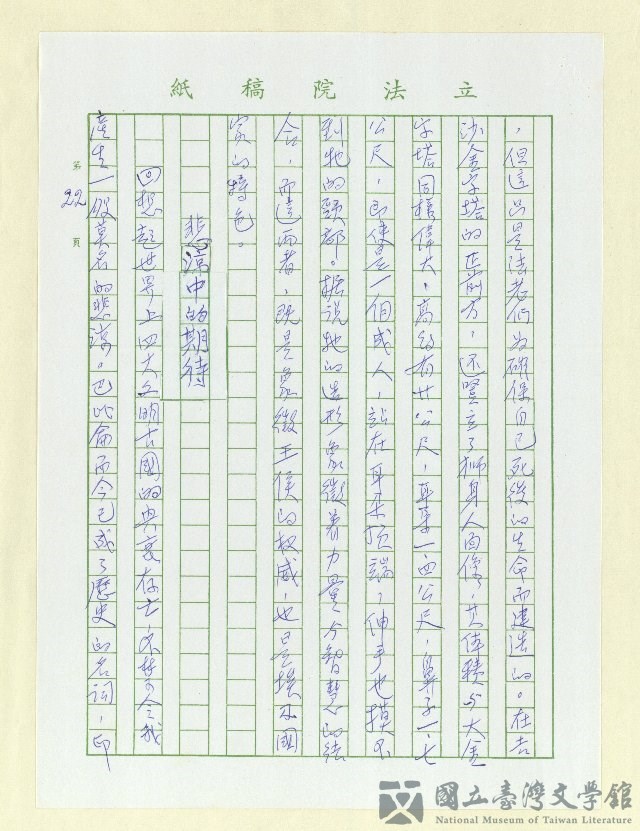 立法院稿紙
，但這只是法老們為確保自己死後的生命而建造的。在吉
沙金字塔的正前方，還豎立了獅身人面像，其体積与大金
字塔同樣偉大，高約有廿公尺，耳朵一・四公尺，鼻子一・七
公尺，即使是一個成人，站在耳朵頂端，伸手也摸不
到牠的頭部。据說牠的造形象徵着力量与智慧的結
合，而這两者，既是象徵王侯的权威，也是埃及國
家的特色。
悲涼中的期待
回想起世界上四大文明古國的興衰存亡，不禁令我
產生一股莫名的悲涼。巴比倫而今已成了歷史的名詞，印
第22頁
國立臺灣文學館
National Museum of Taiwan Literature